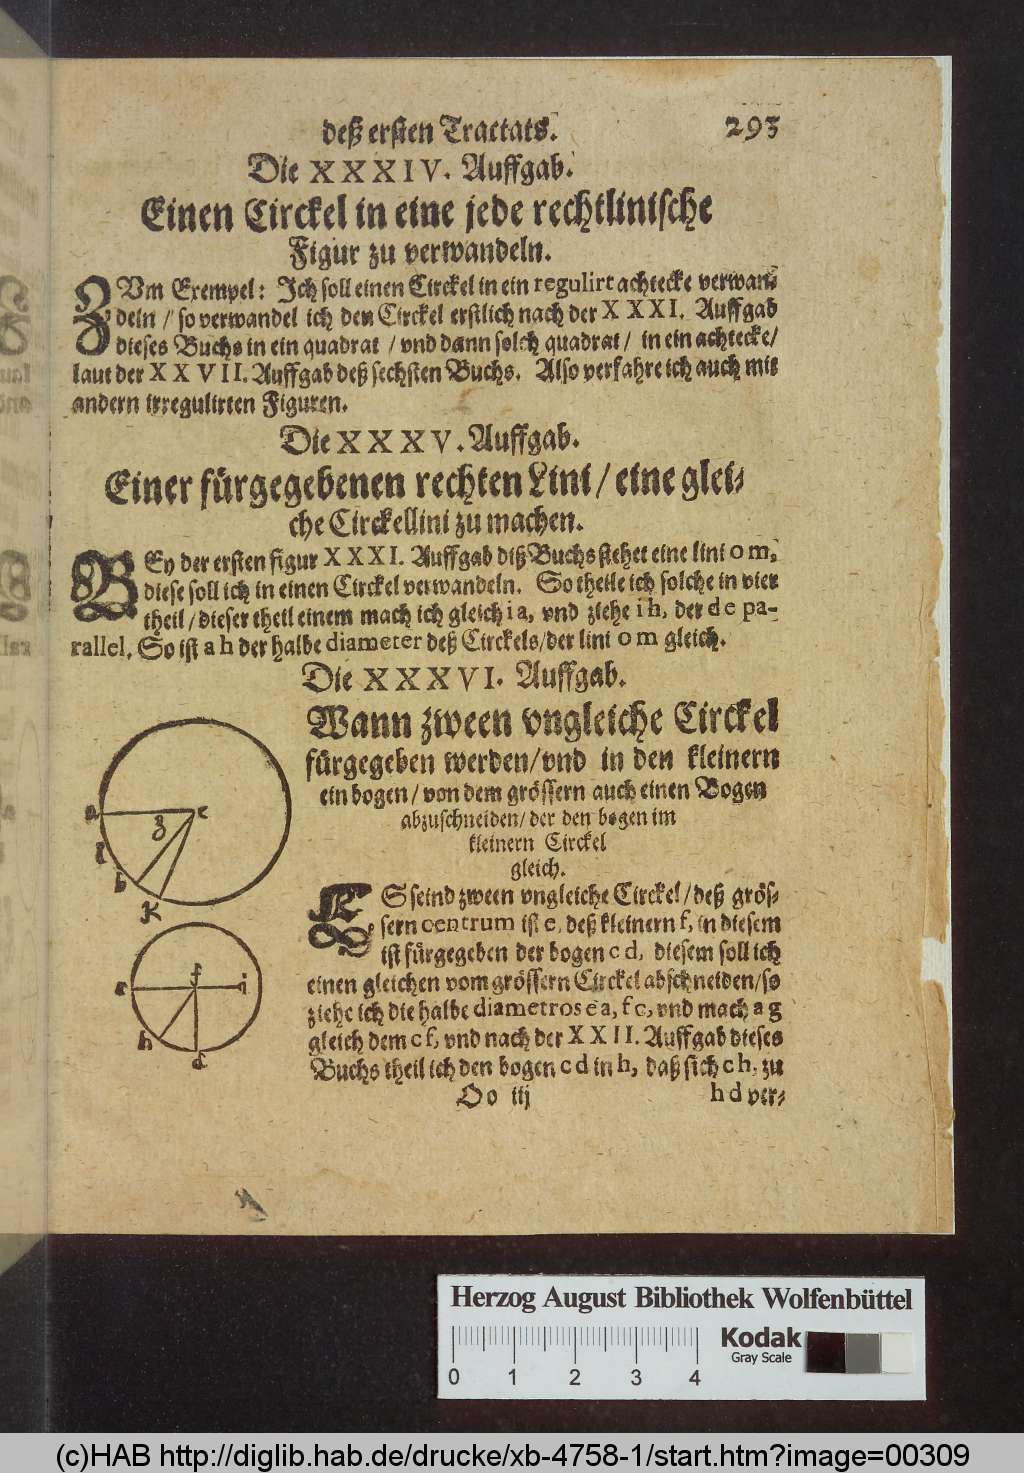 deß ersten Tractats. 293
Die XXXIV. Auffgab.
Einen Circkel in eine jede rechtlinische
Figur zu verwandeln.
ZUm Exempel: Ich soll einen Circkel in ein regulirt achtecke verwan-
deln / so verwandel ich den Circkel erstlich nach der XXXI. Auffgab
dieses Buchs in ein quadrat / vnd dann solch quadrat / in ein achtecke /
laut der XXVII. Auffgab deß sechsten Buchs. Also verfahre ich auch mit
andern irregulirten Figuren.
Die XXXV. Auffgab.
Einer fürgegebenen rechten Lini / eine glei-
che Circkellini zu machen.
BEy der ersten figur XXXI. Auffgab diß Buchs stehet eine lini o m,
diese soll ich in einen Circkel verwandeln. So theile ich solche in vier
theil / dieser theil einem mach ich gleich i a, vnd ziehe i h, der d e pa-
rallel. So ist a h der halbe diameter deß Circkels / der lini o m gleich.
Die XXXVI. Auffgab.
Wann zween vngleiche Circkel
fürgegeben werden / vnd in den kleinern
ein bogen / von dem grössern auch einen Bogen
abzuschneiden / der den bogen im
kleinern Circkel
gleich.
ES seind zween vngleiche Circkel / deß grös-
sern centrum ist e, deß kleinern f, in diesem
ist fürgegeben der bogen c d, diesem soll ich
einen gleichen vom grössern Circkel abschneiden / so
ziehe ich die halbe diametros e a, f c, vnd mach a g
gleich dem c f, vnd nach der XXII. Auffgab dieses
Buchs theil ich den bogen c d in h, daß sich c h, zu
Oo iij h d ver-
a e
g
l
b
k
f
c i
h
d
Herzog August Bibliothek Wolfenbüttel
Kodak
Gray Scale
0 1 2 3 4
(c)HAB http://diglib.hab.de/drucke/xb-4758-1/start.htm?image=00309